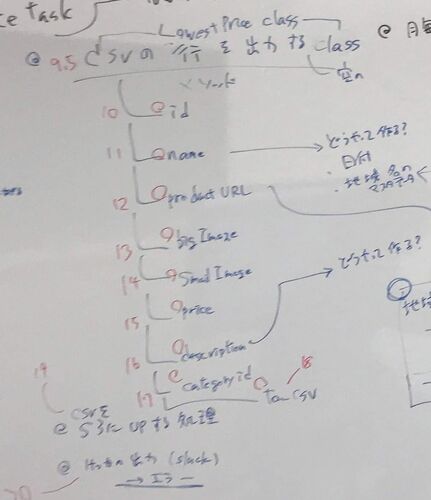 ce Task
Lowest Price class
@ 9.5 CSVの 行を出力する class
@ 月
10 id
11 name → どうやって作る?
・日付
12 product URL
13 big Image
14 Small Image
15 price → どうやって作る?
16 description
17 category id
18
to CSV
19
CSVを
@ S3に UPする処理
@ 出力 (Slack)
→ エラー
20